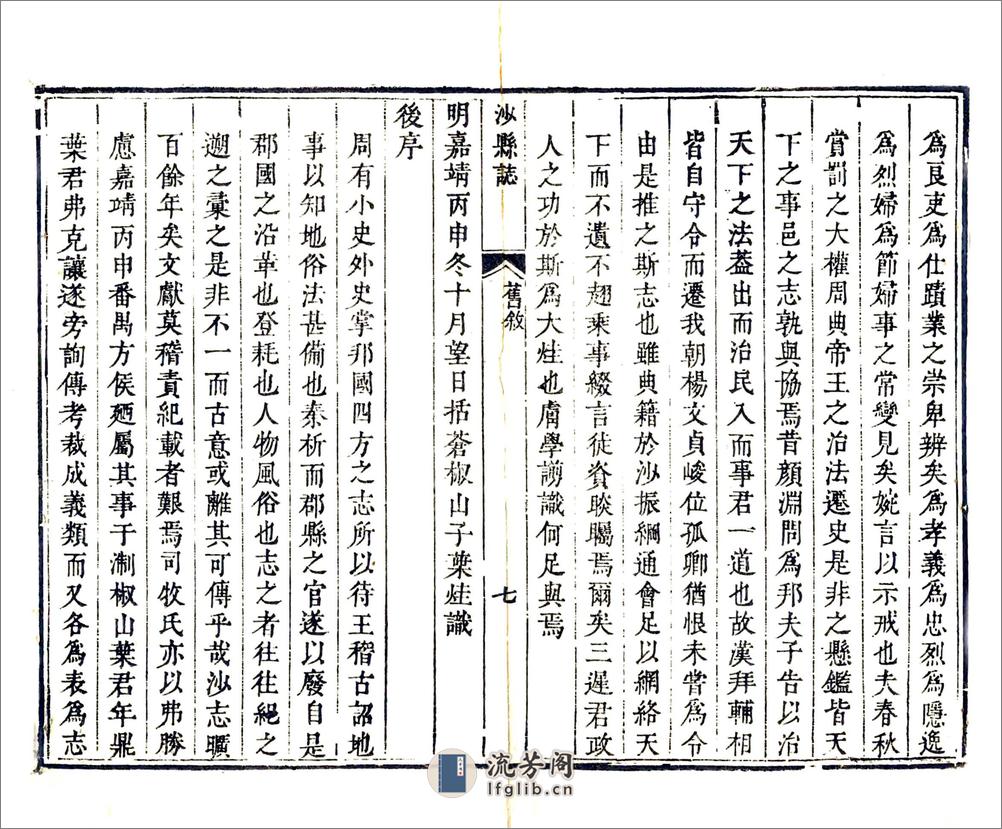 爲良吏爲仕蹟業之崇卑辨矣爲孝義爲忠烈爲隱逸
爲烈婦爲節婦事之常變見矣婉言以示戒也夫春秋
賞罰之大權周典帝王之治法遷史是非之懸鑑皆天
下之事邑之志孰與協焉昔顏淵問爲邦夫子告以治
天下之法葢出而治民入而事君一道也故漢拜輔相
皆自守令而遷我朝楊文貞峻位孤卿猶恨未嘗爲令
由是推之斯志也雖典籍於沙振綱通會足以網絡天
下而不遺不趐乘事綴言徒資睒矚焉爾矣三遲君政
人之功於斯爲大烓也膚學謭識何足與焉
明嘉靖丙申冬十月望日括蒼椒山子葉烓識
沙縣誌
舊敘
七
後序
周有小史外史掌邦國四方之志所以待王稽古詔地
事以知地俗法甚備也秦析而郡縣之官遂以廢自是
郡國之沿革也登耗也人物風俗也志之者往往絕之
遡之彙之是非不一而古意或離其可傳乎哉沙志曠
百餘年矣文獻莫稽責紀載者艱焉司牧氏亦以弗勝
慮嘉靖丙申番禺方侯廼屬其事于淛椒山葉君年鼎
葉君弗克讓遂旁詢傳考裁成義類而又各爲表爲志
流芳阁
lfglib.cn